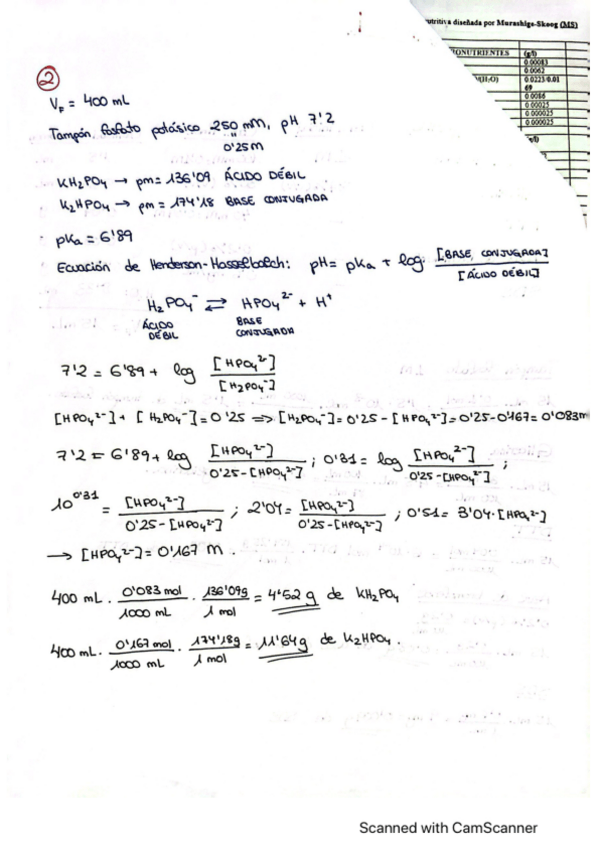 nutritiva diseñada por Murashige-Skoog (MS)
(g/l)
0.00083
0.0062
0.0223/0.01
69
0.0086
0.00025
0.000025
0.000025
(g/l)
②
V_F = 400 mL
Tampón fosfato potásico 250 mM, pH 7'2
0'25 M
KH₂PO₄ → pm = 136'09 ÁCIDO DÉBIL
K₂HPO₄ → pm = 174'18 BASE CONJUGADA
pKa = 6'89
Ecuación de Henderson-Hasselbalch: pH = pKa + log [BASE CONJUGADA] / [ÁCIDO DÉBIL]
H₂PO₄⁻ ⇄ HPO₄²⁻ + H⁺
ÁCIDO DÉBIL BASE CONJUGADA
7'2 = 6'89 + log [HPO₄²⁻] / [H₂PO₄⁻]
[HPO₄²⁻] + [H₂PO₄⁻] = 0'25 ⇒ [H₂PO₄⁻] = 0'25 - [HPO₄²⁻] = 0'25 - 0'167 = 0'083 m
7'2 = 6'89 + log [HPO₄²⁻] / 0'25 - [HPO₄²⁻] ; 0'31 = log [HPO₄²⁻] / 0'25 - [HPO₄²⁻] ;
10^0'31 = [HPO₄²⁻] / 0'25 - [HPO₄²⁻] ; 2'04 = [HPO₄²⁻] / 0'25 - [HPO₄²⁻] ; 0'51 = 3'04 · [HPO₄²⁻]
→ [HPO₄²⁻] = 0'167 M.
400 mL · 0'083 mol / 1000 mL · 136'09 g / 1 mol = 4'52 g de KH₂PO₄
400 mL · 0'167 mol / 1000 mL · 174'18 g / 1 mol = 11'64 g de K₂HPO₄.
Scanned with CamScanner